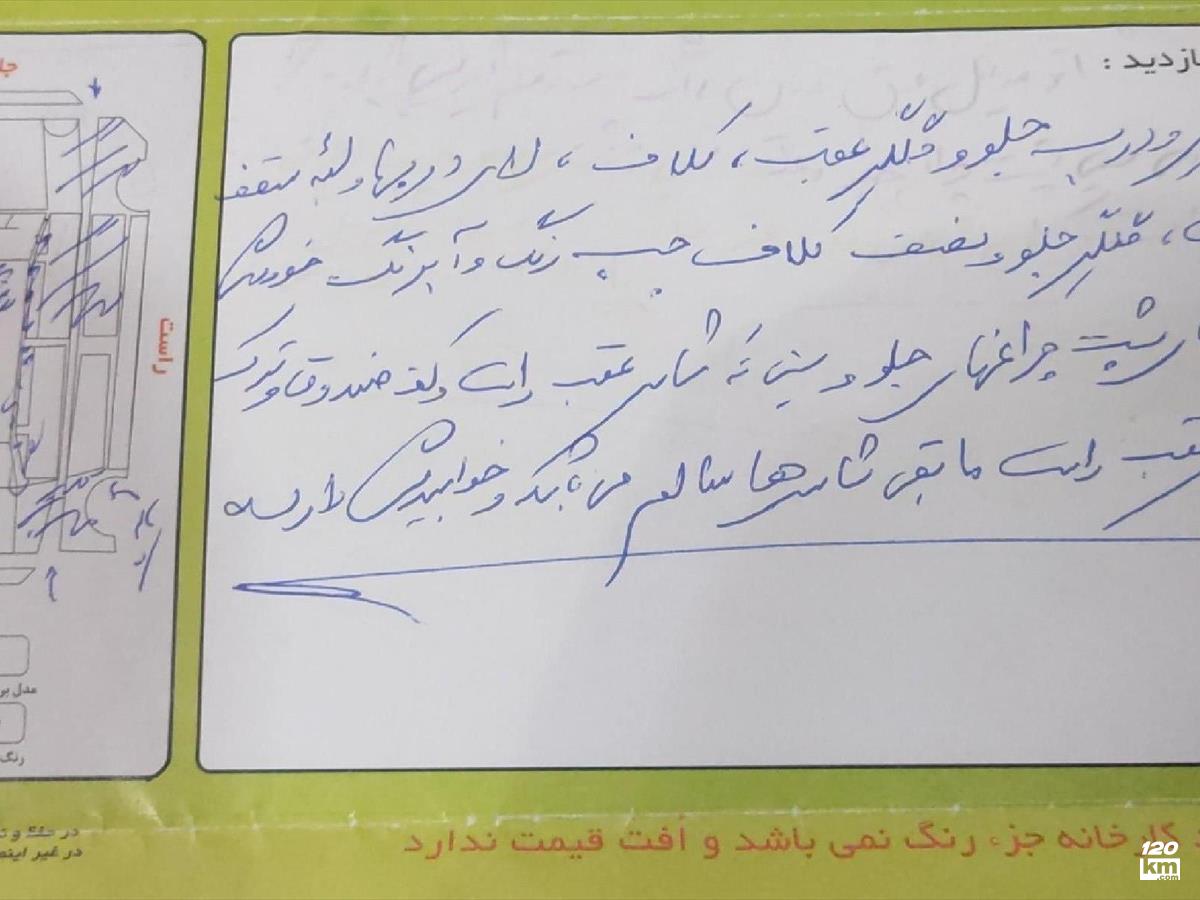 ازدید :
و درب جلو و گلگیر عقب، کلاف، لای دربها و لبه سقف
، گلگیر جلو و نصف کلاف چپ رنگ و آبرنگ خورده
پشت چراغهای جلو و سینی ته شاسی عقب راست و کف صندوق و ترک
عقب راست مابقی شاسی ها سالم می باشد و خوابیدگی دارد
جل
راست
مدل بر
رنگ
در حک و ت
در غیر این
کارخانه جزء رنگ نمی باشد و اُفت قیمت ندارد
120
km
.com